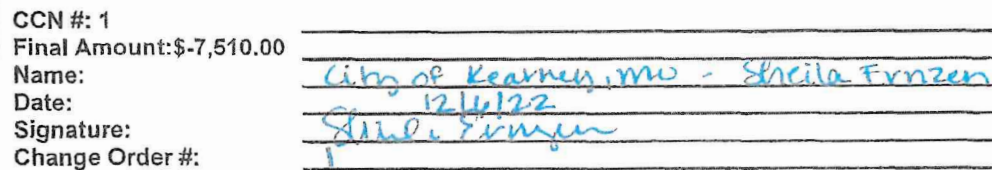 CCN #: 1
Final Amount:$-7,510.00
Name: City of Kearney, MO - Sheila Ernzen
Date: 12/6/22
Signature: Sheila Ernzen
Change Order #: 1